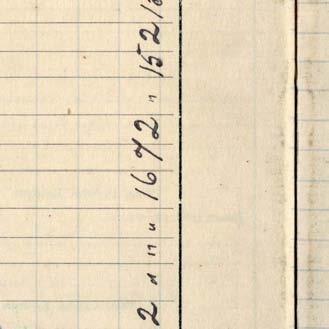 2 " " " 1672 " 152